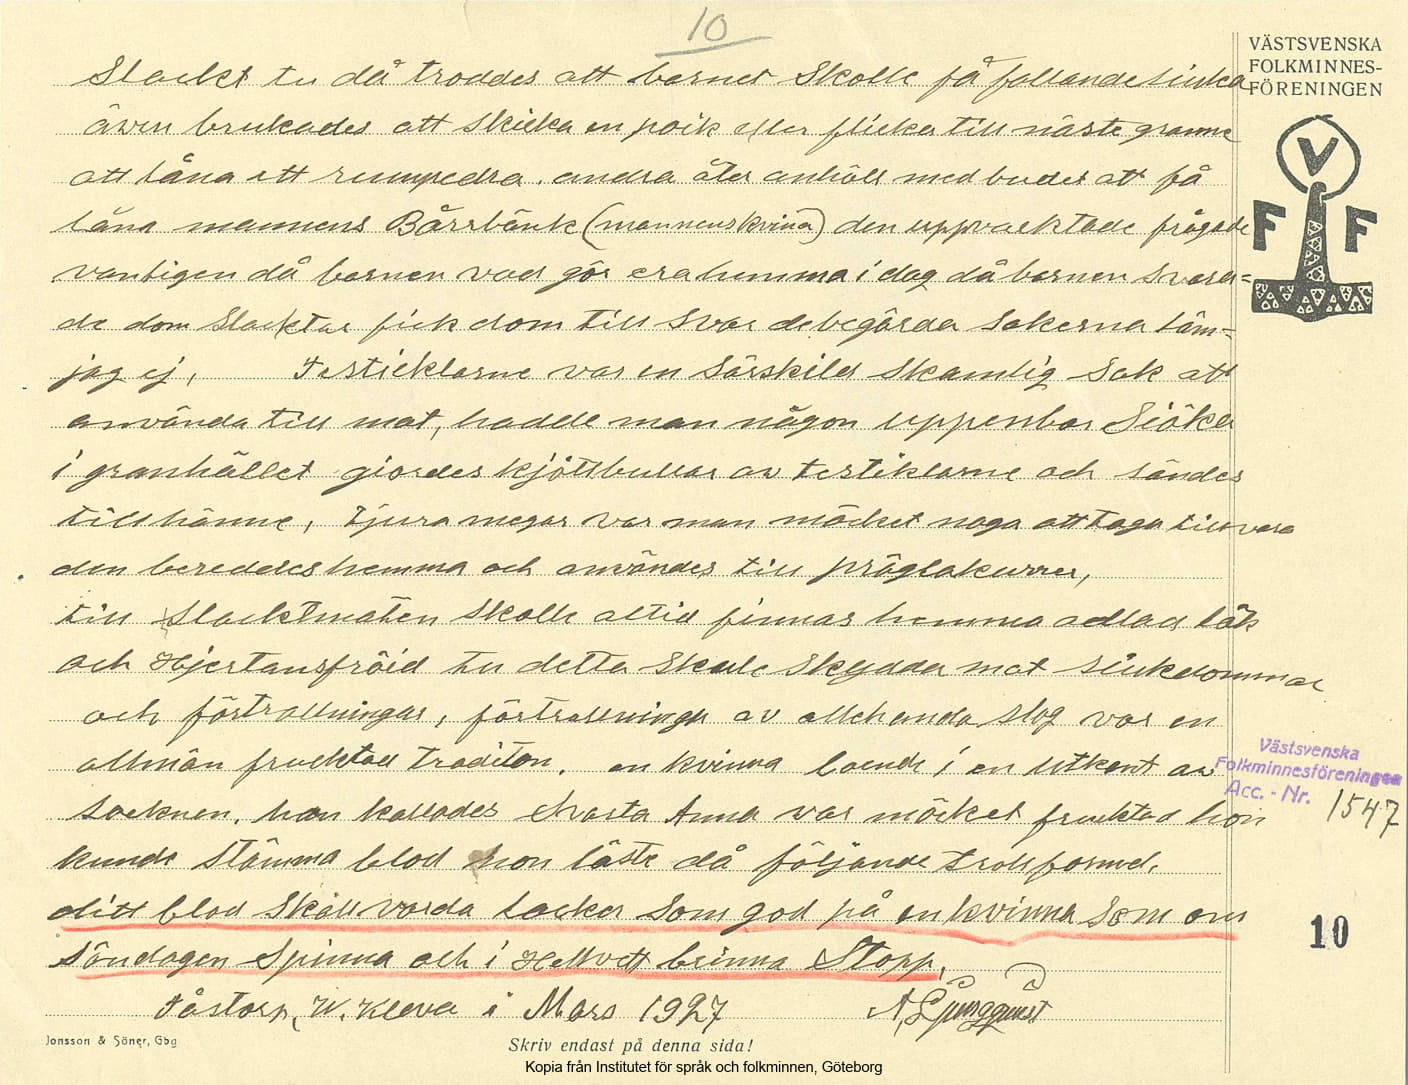 10
VÄSTSVENSKA
FOLKMINNES-
FÖRENINGEN
V
F F
Slackt tu då troddes att barnet skolle få fallandesiuka
äwen brukades att skicka en poik eller flicka till näste granne
att låna ett rumpedra. andra åter anhöll med budet att få
låna mannens Bårrbänk (mannenskvina) den uppvacktade frågade
vantigen då barnen vad gör era hemma i dag då barnen svara=
de dom slacktar fick dom till svar de begärda sakerna läm=
jag ej, Testicklarne var en särskild skamlig sak att
använda till mat, hadde man någon uppenbar Siöka
i granhället giordes kjöttbullar av testiklarne och sändes
till hänne, tjuramegar var man möcket noga att taga tillvara
den bereddes hemma och användes till pröglakurrer,
till slacktmaten skolle altid finnas hemma odlad lök
och Hjertansfröid tu detta skule skydda mot siukdommar
och förtrollningar, förtrollninga av allehanda slag var en
allmän fruktad tradition. en kvinna boende i en utkant av
socknen, hon kallades Hvasta Anna var möcket fruktad hon
kunde stämma blod hon läste då följande trollformel.
ditt blod skall varda tacker som god på en kvinna som om
söndagen Spinna och i Hellvett brinna Stopp,
Fåstorp, W. Kleva i Mars 1927 A, Ljungquist
Västsvenska
Folkminnesföreningen
Acc. - Nr. 1547
10
Jonsson & Söner, Gbg
Skriv endast på denna sida!
Kopia från Institutet för språk och folkminnen, Göteborg